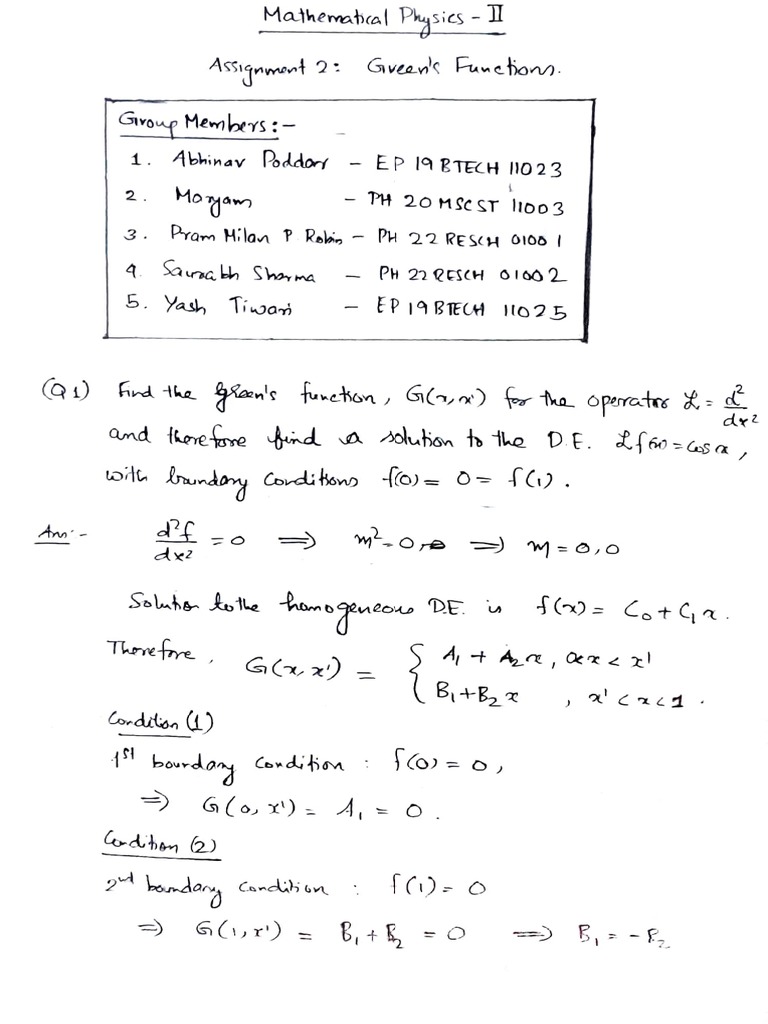 Mathematical Physics - II
Assignment 2: Green's Functions.
Group Members:-
1. Abhinav Poddar - EP 19 BTECH 11023
2. Moryam - PH 20 MSCST 11003
3. Pram Milan P Robin - PH 22 RESCH 01001
4. Saurabh Sharma - PH 22 RESCH 01002
5. Yash Tiwari - EP 19 BTECH 11025
(Q1) Find the green's function, G(x,x') for the operator ℒ = d²/dx²
and therefore find a solution to the D.E. ℒf(x) = cos x,
with boundary conditions f(0) = 0 = f(1).
Ans:- d²f/dx² = 0 ⟹ m² = 0, ⟹ m = 0,0
Solution to the homogeneous D.E. is f(x) = C₀ + C₁x.
Therefore, G(x,x') = { A₁ + A₂x, 0<x<x'
B₁+B₂x , x'<x<1.
Condition (1)
1st boundary condition : f(0) = 0,
⟹ G(0,x') = A₁ = 0.
Condition (2)
2nd boundary condition : f(1) = 0
⟹ G(1,x') = B₁ + B₂ = 0 ⟹ B₁ = -B₂